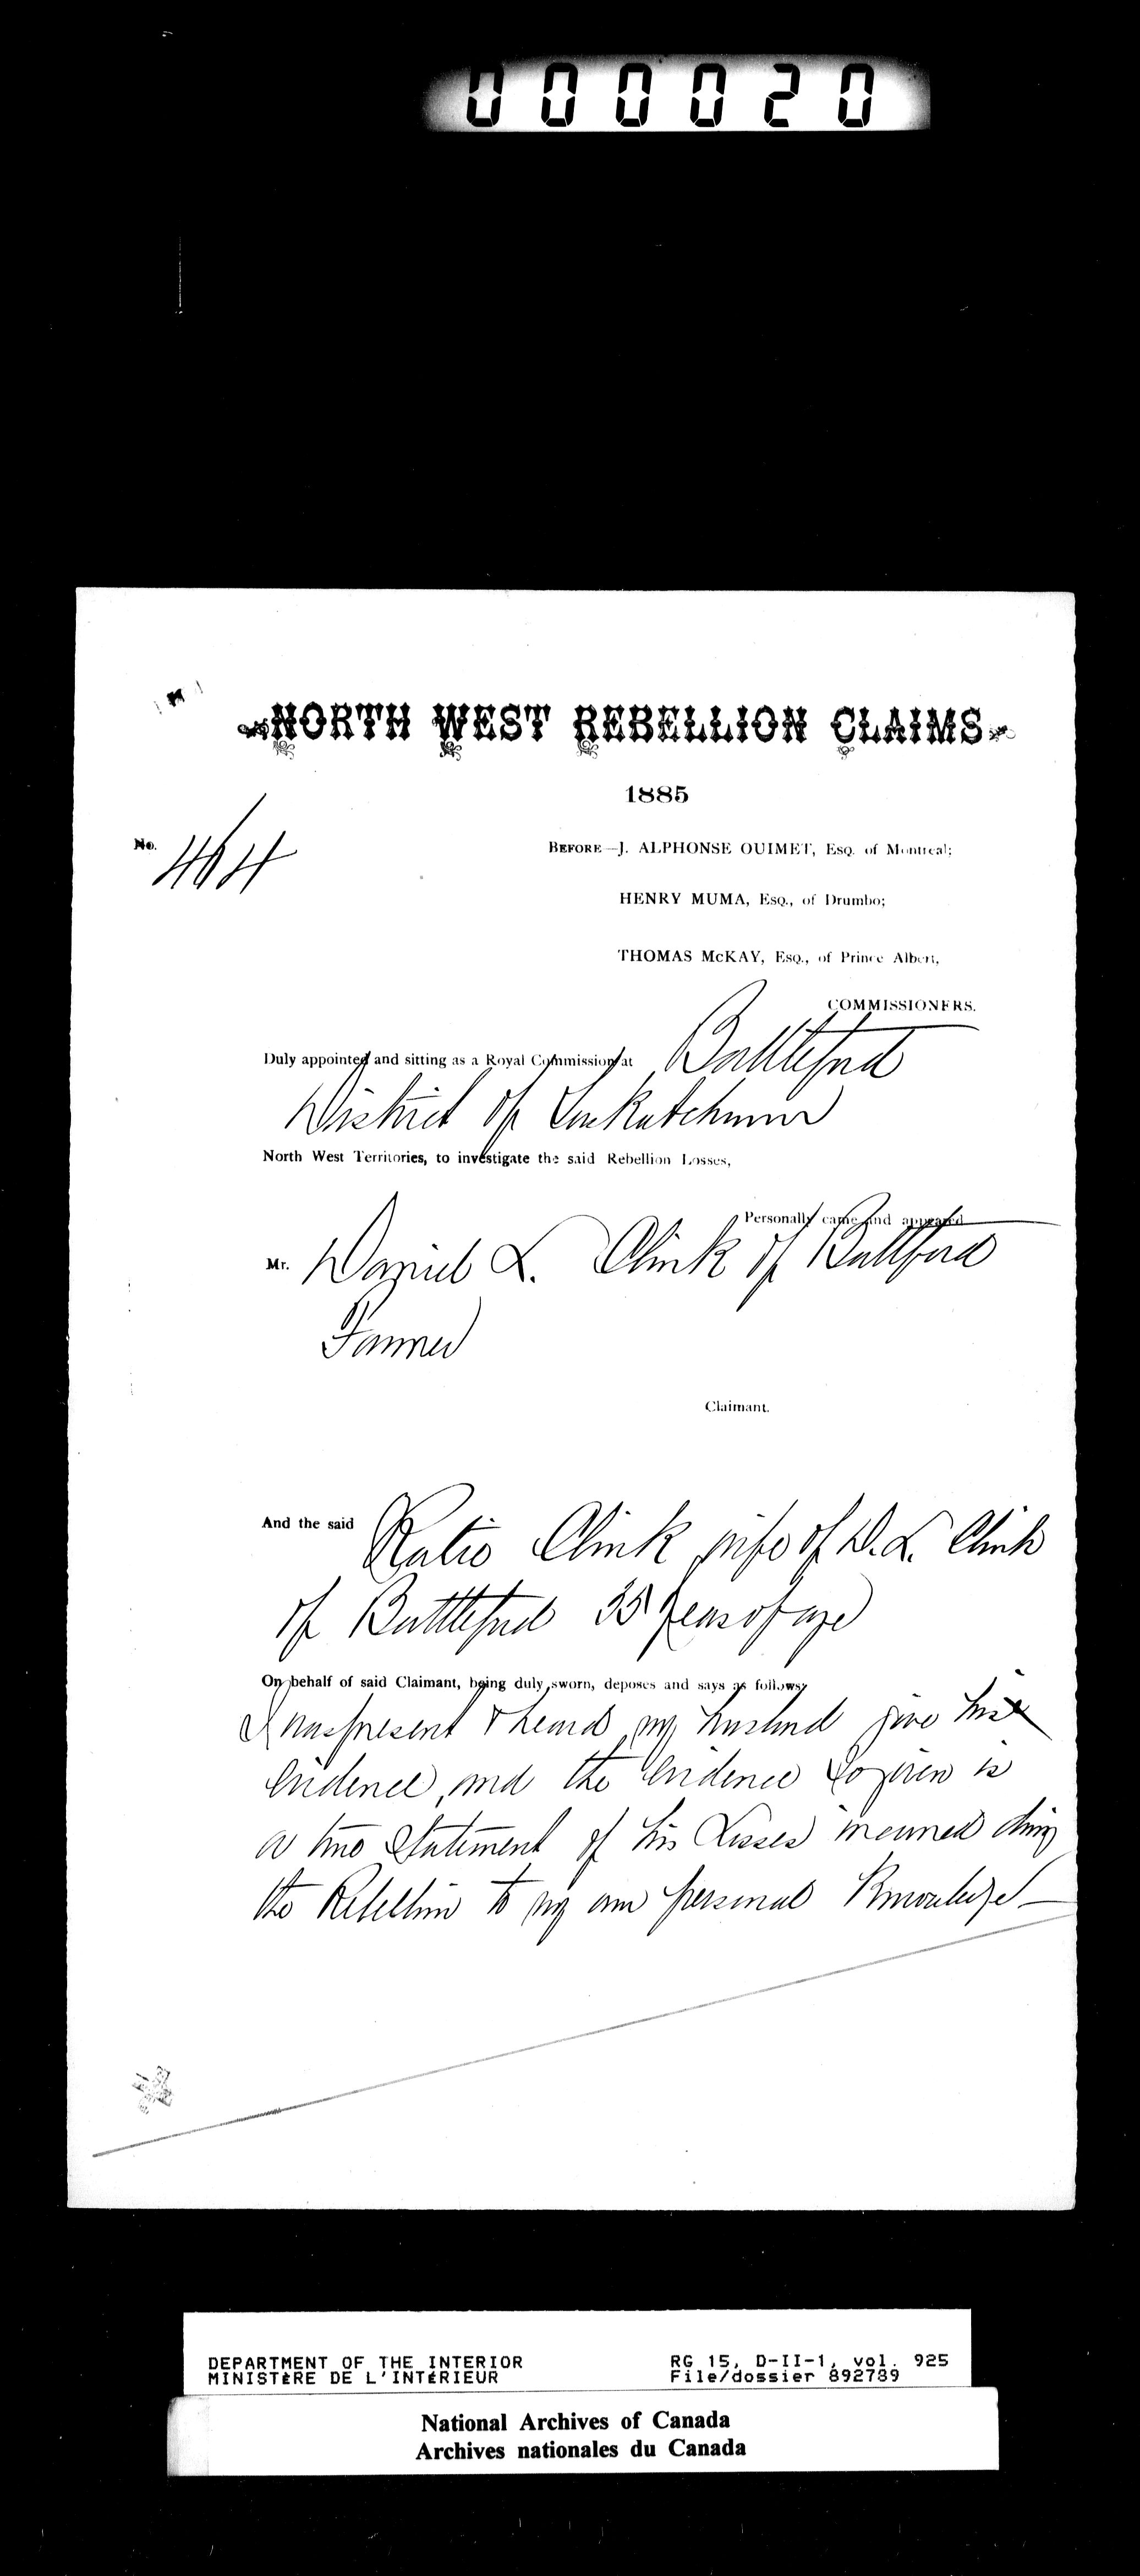 000020
NORTH WEST REBELLION CLAIMS
1885
No. 464
BEFORE—J. ALPHONSE OUIMET, Esq. of Montreal;
HENRY MUMA, Esq., of Drumbo;
THOMAS McKAY, Esq., of Prince Albert,
COMMISSIONERS.
Duly appointed and sitting as a Royal Commission at Battleford
District of Saskatchewan
North West Territories, to investigate the said Rebellion Losses,
Personally came and appeared
Mr. Daniel L. Clink of Battleford
Farmer
Claimant.
And the said Katie Clink wife of D. L. Clink
of Battleford 35 years of age
On behalf of said Claimant, being duly sworn, deposes and says as follows:
I was present & heard my husband give his
evidence, and the evidence so given is
a true statement of his Losses incurred during
the Rebellion to my own personal Knowledge—
DEPARTMENT OF THE INTERIOR
MINISTÈRE DE L'INTÉRIEUR
RG 15, D-II-1, vol. 925
File/dossier 892789
National Archives of Canada
Archives nationales du Canada